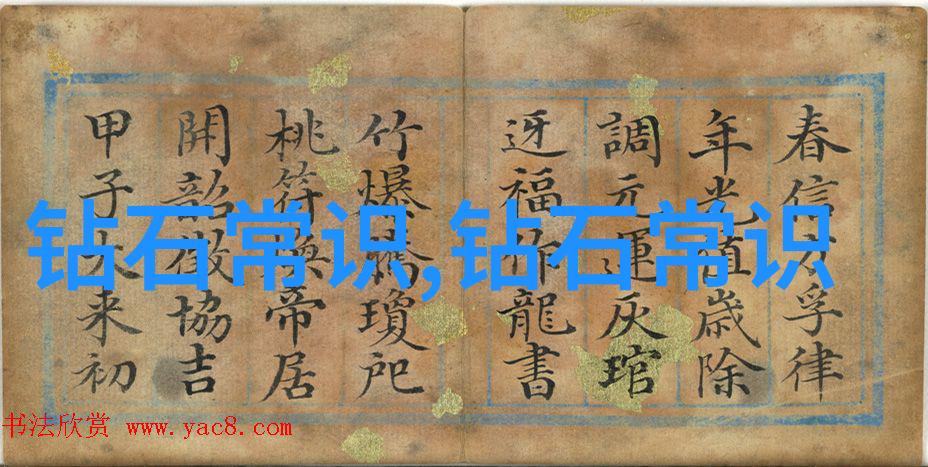 春信孚律
年光值歲除
調元運灰琯
迓福龍書
竹爆瓊戺
桃符換帝居
開韶徵協吉
甲子來初
钻石常识,钻石常识
书法欣赏 www.yac8.com